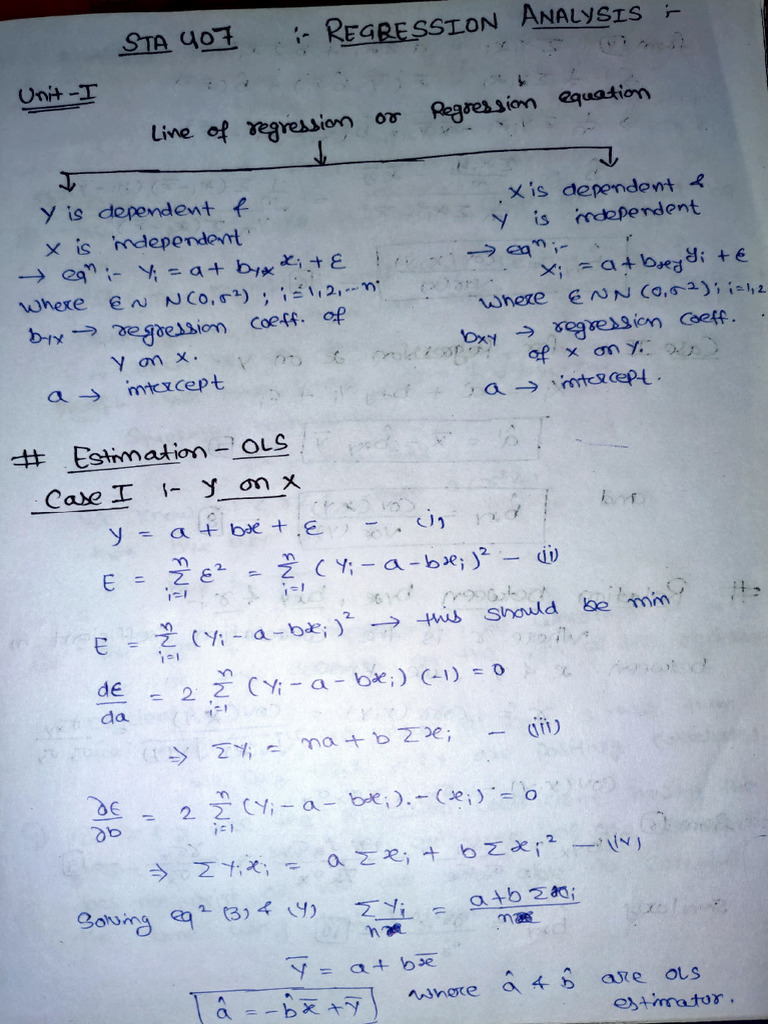 STA 407 :- REGRESSION ANALYSIS :-
Unit-I
Line of regression or Regression equation
Y is dependent &
X is independent
→ eqⁿ :- Yᵢ = a + byx xᵢ + ε
where ε ~ N(0,σ²) ; i=1,2,...n
byx → regression coeff. of
Y on X.
a → intercept
X is dependent &
Y is independent
→ eqⁿ :-
Xᵢ = a + bxy yᵢ + ε
where ε ~ N(0,σ²); i=1,2
bxy → regression coeff.
of X on Y.
a → intercept.
# Estimation - OLS
Case I :- Y on X
Y = a + bx + ε - (i)
E = Σⁿᵢ₌₁ ε² = Σⁿᵢ₌₁ (Yᵢ - a - bxᵢ)² - (ii)
E = Σⁿᵢ₌₁ (Yᵢ - a - bxᵢ)² → this should be min
dε/da = 2 Σⁿᵢ₌₁ (Yᵢ - a - bxᵢ) (-1) = 0
⇒ ΣYᵢ = na + b Σxᵢ - (iii)
∂ε/∂b = 2 Σⁿᵢ₌₁ (Yᵢ - a - bxᵢ).-(xᵢ) = 0
⇒ ΣYᵢxᵢ = a Σxᵢ + b Σxᵢ² - (iv)
Solving eq² (3) & (4) ΣYᵢ/n = a+b Σxᵢ/n
Ȳ = a + bx̄
â = -b̂x̄ + Ȳ where â & b̂ are OLS
estimator.